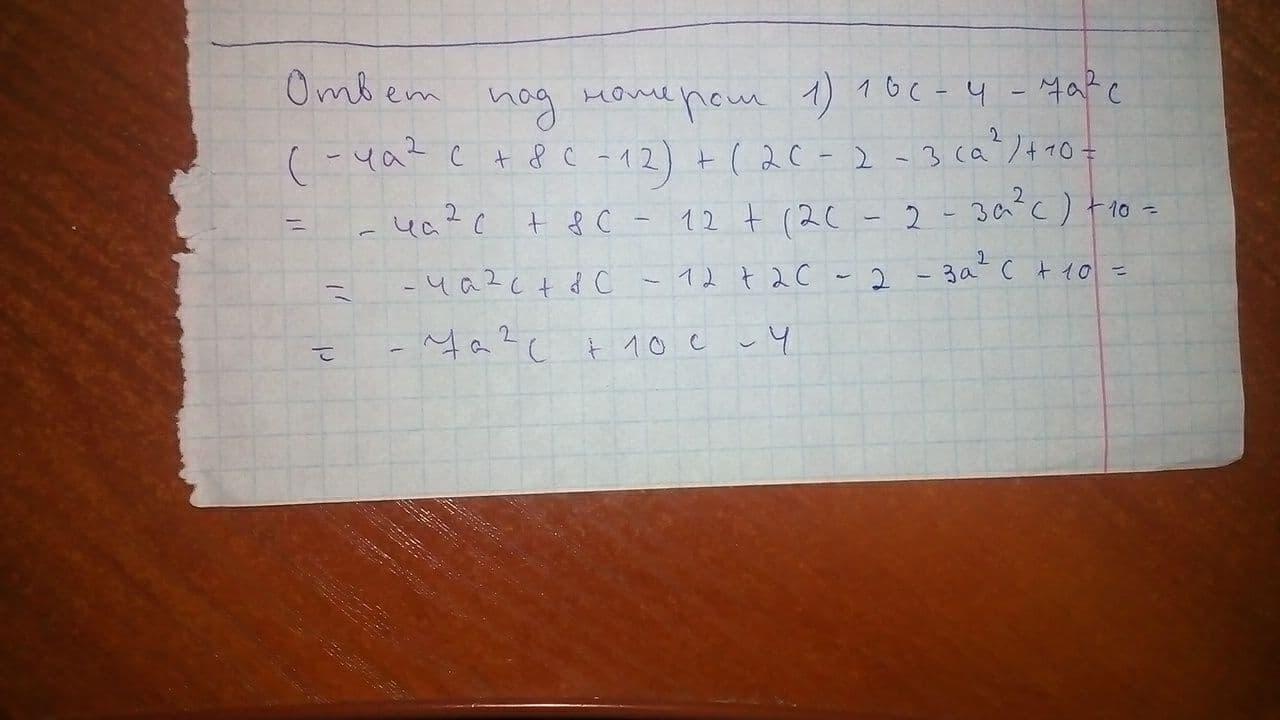 Ответ под номером 1) 10c - 4 - 7a²c
(-4a² c + 8c - 12) + (2c - 2 - 3ca²) + 10 =
= - 4a²c + 8c - 12 + (2c - 2 - 3a²c) + 10 =
= - 4a²c + 8c - 12 + 2c - 2 - 3a²c + 10 =
= - 7a²c + 10c - 4